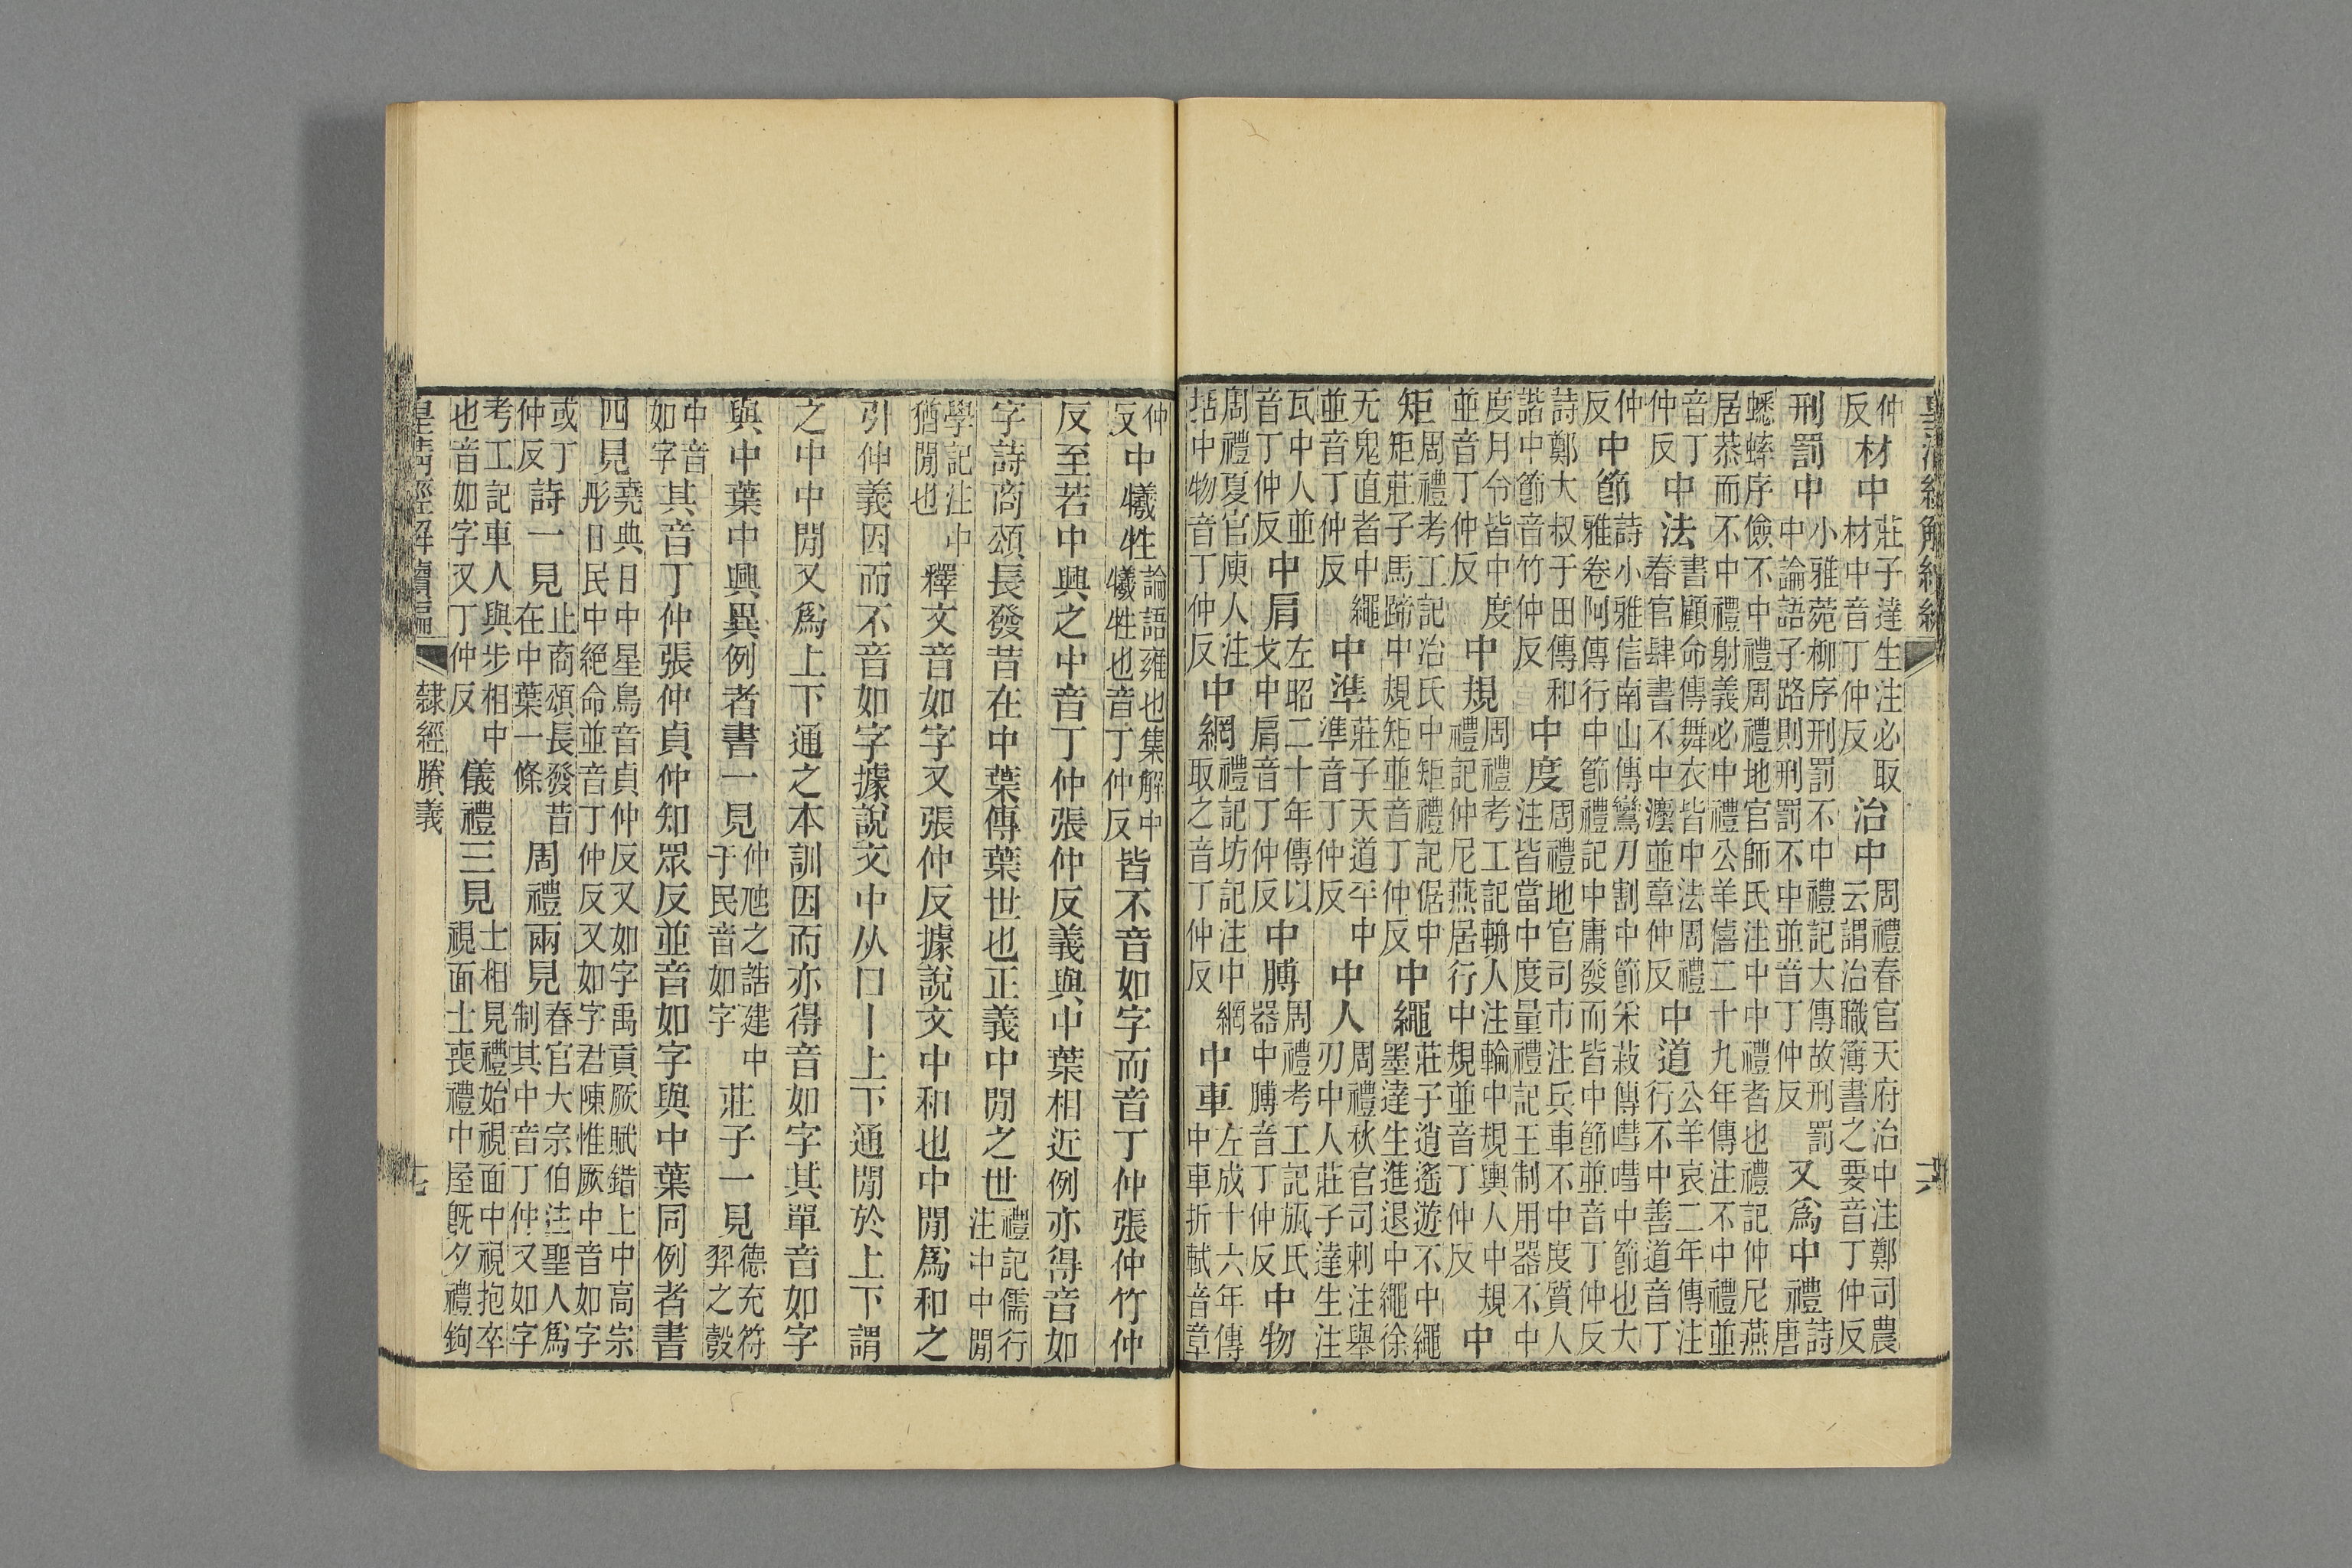 皇清經解續編
仲反材中莊子達生注必取材中音丁仲反治中周禮春官天府治中注鄭司農云謂治職簿書之要音丁仲反
刑罰中小雅菀柳序刑罰不中禮記大傳故刑罰中論語子路則刑罰不中並音丁仲反又爲中禮詩唐
蟋蟀序儉不中禮周禮地官師氏注中中禮者也禮記仲尼燕居恭而不中禮射義必中禮公羊僖二十九年傳注不中禮並
音丁仲反中法書顧命傳舞衣皆中法周禮春官肆書不中灋並章仲反中道公羊哀二年傳注行不中善道音丁
仲反中節詩小雅信南山傳鸞刀割中節采菽傳嘒嘒中節也大雅卷阿傳行中節禮記中庸發而皆中節並音丁仲反
詩鄭大叔于田傳和諧中節音竹仲反中度周禮地官司市注兵車不中度質人注皆當中度量禮記王制用器不中
度月令皆中度並音丁仲反中規周禮考工記輈人注輪中規輿人中規禮記仲尼燕居行中規並音丁仲反中
矩周禮考工記冶氏中矩禮記倨中矩莊子馬蹄中規矩並音丁仲反中繩莊子逍遙遊不中繩墨達生進退中繩徐
无鬼直者中繩並音丁仲反中準莊子天道平中準音丁仲反中人周禮秋官司刺注舉刃中人莊子達生注
瓦中人並音丁仲反中肩左昭二十年傳以戈中肩音丁仲反中膊周禮考工記瓬氏器中膊音丁仲反中物
周禮夏官庾人注括中物音丁仲反中網禮記坊記注中網取之音丁仲反中車左成十六年傳中車折軾音章
仲反中犧牲論語雍也集解中犧牲也音丁仲反皆不音如字而音丁仲張仲竹仲
反至若中興之中音丁仲張仲反義與中葉相近例亦得音如
字詩商頌長發昔在中葉傳葉世也正義中閒之世禮記儒行注中中閒
學記注中猶閒也釋文音如字又張仲反據說文中和也中閒爲和之
引伸義因而不音如字據說文中从口丨上下通閒於上下謂
之中中閒又爲上下通之本訓因而亦得音如字其單音如字
與中葉中興異例者書一見仲虺之誥建中于民音如字莊子一見德充符羿之彀
中音如字其音丁仲張仲貞仲知眾反並音如字與中葉同例者書
四見堯典日中星鳥音貞仲反又如字禹貢厥賦錯上中高宗肜日民中絕命並音丁仲反又如字君陳惟厥中音如字
或丁仲反詩一見止商頌長發昔在中葉一條周禮兩見春官大宗伯注聖人爲制其中音丁仲又如字
考工記車人與步相中也音如字又丁仲反儀禮三見士相見禮始視面中視抱卒視面士喪禮中屋旣夕禮鉤
皇清經解續編 隸經賸義 十七